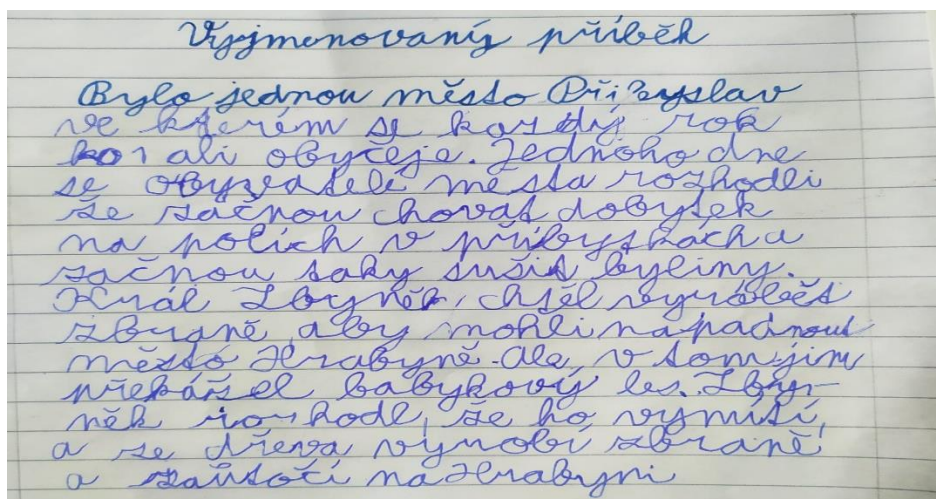 Vyjmenovaný příběh
Bylo jednou město Přibyslav
ve kterém se každý rok
konali obyčeje. Jednoho dne
se obyvatelé města rozhodli
že začnou chovat dobytek
na polích v příbytkách a
začnou taky sušit byliny.
Král Zbyněk, chtěl vyrábět
zbraně, aby mohli napadnout
město Hrabyně. Ale, v tom jim
překážel babykový les. Zby-
něk rozhodl, že ho vymítí,
a ze dřeva vyrobí zbraně
a zaútočí na Hrabyni